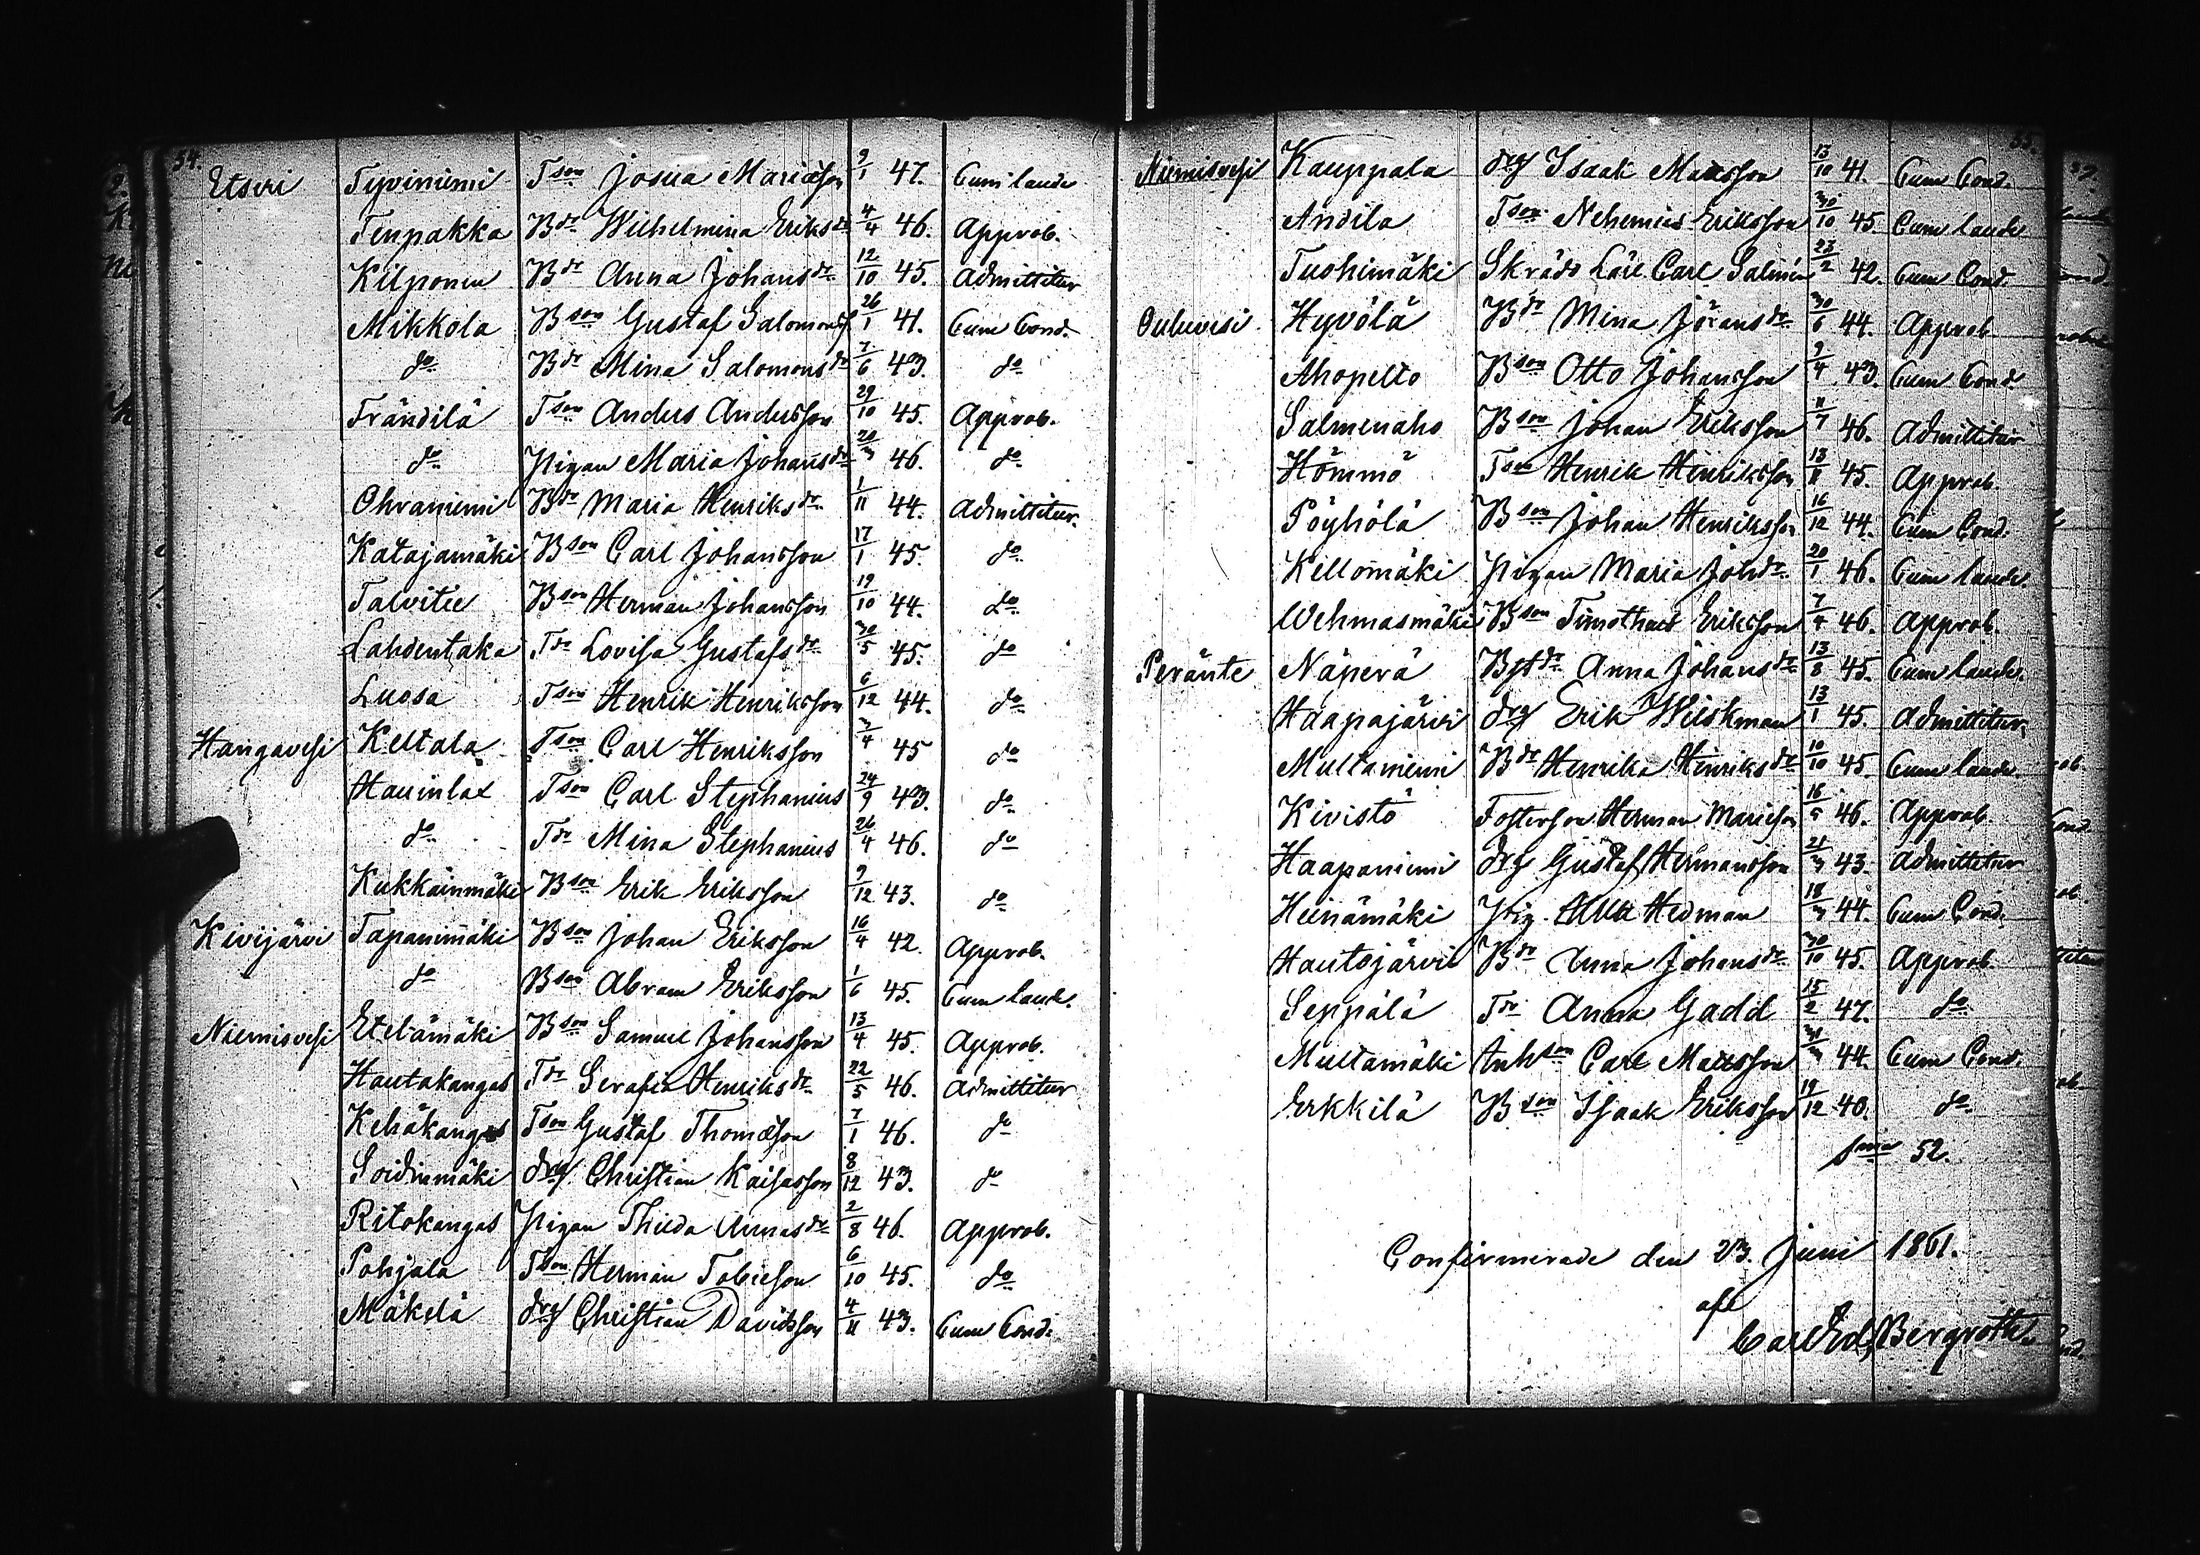 54.
Etseri Tyviniemi Tson Josua Mariæson 9/1 47. Cum laude
Tenpakka Bdr Wilhelmina Eriksdr 4/4 46. Approb.
Kilponen Bdr Anna Johansdr 12/10 45. Admittitur
Mikkola Bson Gustaf Salomonsf 26/1 41. Cum Cond.
do Bdr Mina Salomonsdr 7/6 43. do
Frändilä Tson Anders Andersson 29/10 45. Approb.
do Pigan Maria Johansdr 20/3 46. do
Ohraniemi Bdr Maria Henriksdr 1/11 44. Admittitur.
Katajamäki Bson Carl Johansson 17/1 45. do
Talvitie Bson Herman Johansson 19/10 44. do
Lahdentaka Tdr Lovisa Gustafsdr 30/5 45. do
Luosa Tson Henrik Henriksson 6/12 44. do
Hangavesi Keltala Tson Carl Henriksson 3/4 45 do
Hauinlax Tson Carl Stephanius 24/9 43. do
do Tdr Mina Stephanius 26/4 46. do
Kukkainmäki Bson Erik Eriksson 9/12 43. do
Kivijärvi Tapanimäki Bson Johan Eriksson 16/4 42. Approb.
do Bson Abram Eriksson 1/6 45. Cum laude.
Niemisvesi Etelämäki Bson Samuel Johansson 13/4 45. Approb.
Hautakangas Tdr Serafia Henriksdr 22/5 46. Admittitur
Kehäkangas Tson Gustaf Thomæson 7/1 46. do
Soidinmäki drg Christian Kaisasson 8/12 43. do
Ritokangas Pigan Thilda Annasdr 2/8 46. Approb.
Pohjala Tson Herman Tobieson 6/10 45. do
Mäkelä drg Christian Davidsson 4/11 43. Cum Cond.
55.
Niemisvesi Kauppala drg Isaak Matsson 13/10 41. Cum Cond.
Andila Tson Nehemias Eriksson 30/10 45. Cum laude
Tuohimäki Skrädd Lärl Carl Salmén 23/2 42. Cum Cond.
Ouluvesi Hyvölä Bdr Mina Jöransdr 30/6 44. Approb.
Ahopelto Bson Otto Johansson 9/4 43. Cum Cond.
Salmenaho Bson Johan Eriksson 11/7 46. Admittitur
Hömmö Tson Henrik Henriksson 13/11 45. Approb.
Pöyhölä Bson Johan Henriksson 16/12 44. Cum Cond.
Killomäki Pigan Maria Johdr 20/1 46. Cum laude
Wehmasmäki Bson Timotheus Eriksson 7/4 46. Approb.
Peränte Näperä Bstdr Anna Johansdr 13/8 45. Cum laude.
Haapajärvi drg Erik Weiskman 13/1 45. Admittitur,
Multaniemi Bdr Henrika Henriksdr 10/10 45. Cum laude
Kivistö Fosterson Herman Marieson 16/5 46. Approb.
Haapaniemi drg Gustaf Hermansson 21/3 43. Admittitur
Heinämäki Pig. Hedman 18/3 44. Cum Cond.
Hautojärvi Bdr Anna Johansdr 30/10 45. Approb.
Seppälä Tdr Anna Gadd 15/2 47. do
Multamäki Carl Mattsson 31/3 44. Cum Cond.
Erkkilä Bson Isaak Eriksson 19/12 40. do
Sma 52.
Confirmerade den 23. Juni 1861.
af
Carl Ed. Bergroth